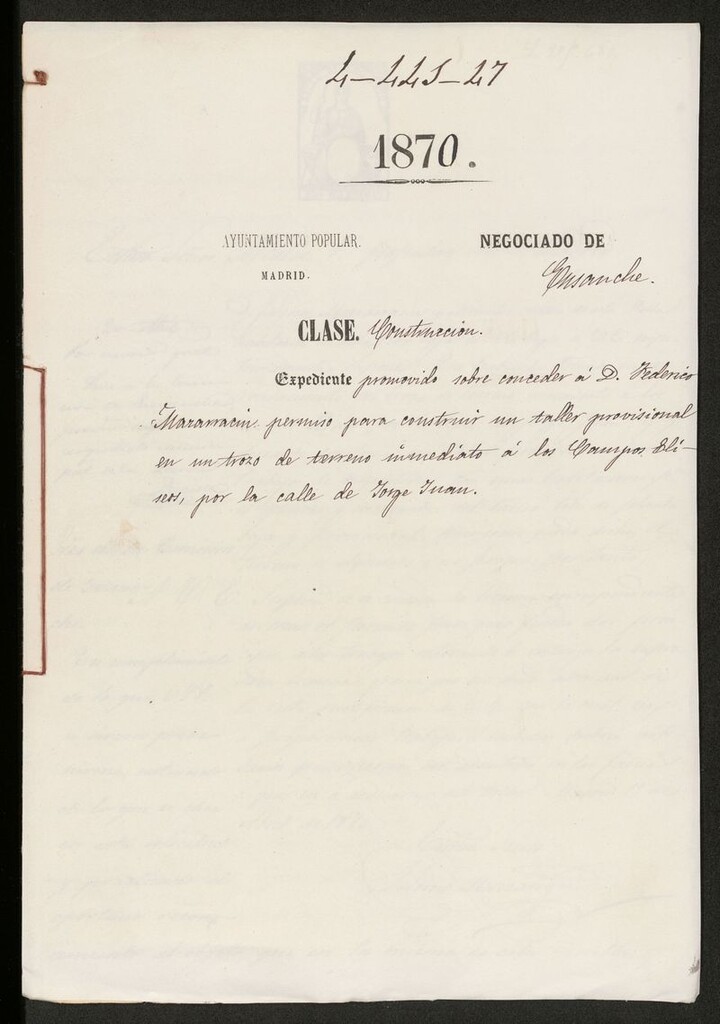 4-445-47
1870.
AYUNTAMIENTO POPULAR.
MADRID.
NEGOCIADO DE
Ensanche.
CLASE. Construccion.
Expediente promovido sobre conceder á D. Federico
Mazarracin permiso para construir un taller provisional
en un trozo de terreno inmediato á los Campos Elí-
seos, por la calle de Jorge Juan.